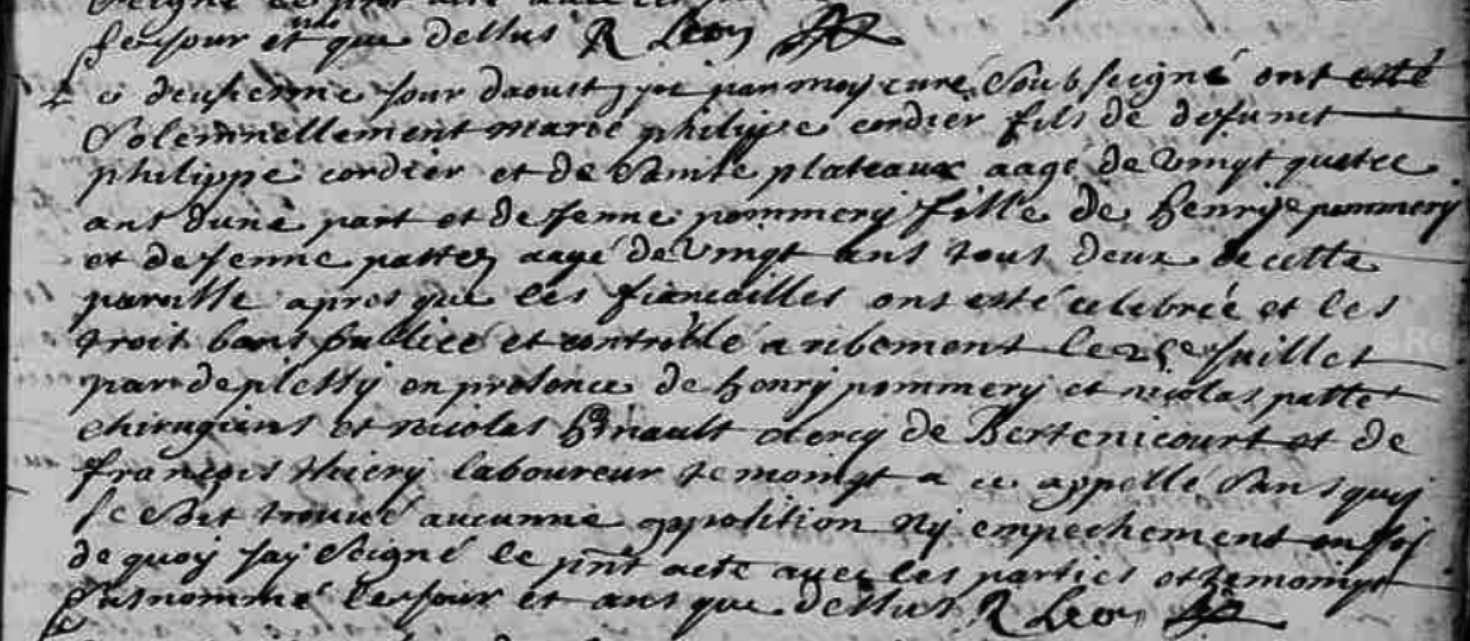 se jour et an que dessus R Leon
Ce deusienne jour daoust par moy curé Soub seigné ont esté
Solemnellement marié philippe cordier fils de defunct
philippe cordier et de Sainte plateaux aagé de Vingt quatre
ant dune part et de Jenne pommery fille de henry pommery
et de Jenne pattez aagé de Vingt ans tous deux de cette
paroisse apres que les fiancailles ont esté celebrée et les
troit bans publiée et controllé a ribemont le 25e Juillet
par deplessy en presence de henry pommery et nicolas patte
chirugiens et nicolas hénault clercq de Bertenicourt et de
françois thiery laboureur temoingt a ce appellé Sans quoy
se Soit trouué aucunne opposition Ny empechement en foy
de quoy Jay Seigné le pnt acte auec les parties et temoingt
Susnommé les jour et ans que dessus R Leon